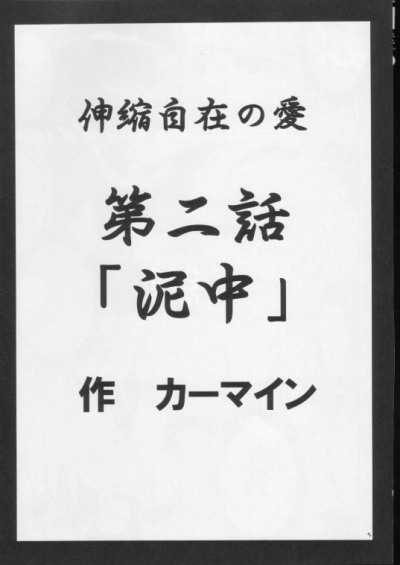 伸縮自在の愛
第二話
「泥中」
作　カーマイン